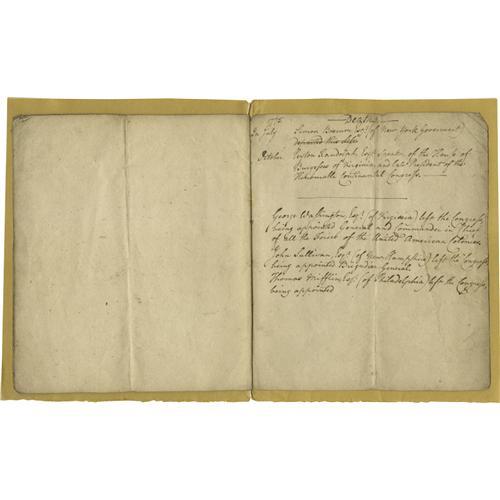 1775
Deaths
In July Simon Boerum Esqr. (of New York Goverment)
departed this life
October Peyton Randolph, Esqr. Speaker of the House of
Burgesses of Virginia, and late President of the
Honourable Continental Congress
George Washington, Esqr. (of Virginia) left the Congress,
being appointed General and Commander in Chief
of all the Forces of the United American Colonies
John Sullivan, Esqr. (of New Hampshire) left the Congress
being appointed Brigadier General
Thomas Mifflin, Esqr. (of Philadelphia) left the Congress,
being appointed